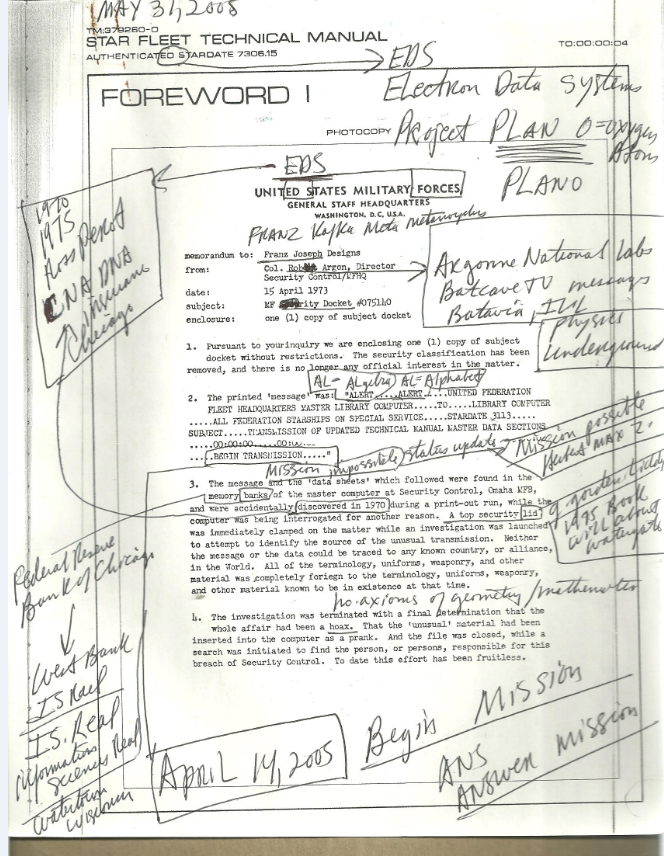 MAY 31, 2005
TM:379260-0
STAR FLEET TECHNICAL MANUAL
AUTHENTICATED STARDATE 7306.15
TO:00:00:04
EDS
Electron Data Systems
FOREWORD I
PHOTOCOPY
Project PLAN O=oxygen
Atoms
PLANO
EDS
UNITED STATES MILITARY FORCES
GENERAL STAFF HEADQUARTERS
WASHINGTON, D.C, U.S.A.
FRANZ Kafka Meta metamorphis
1970
1975
Ross Perot
DNA
Chicago
memorandum to: Franz Joseph Designs
from: Col. Robert Argon, Director
Security Control/MFHQ
date: 15 April 1973
subject: MF Docket #075140
enclosure: one (1) copy of subject docket
Argonne National Labs
Batcave TV messages
Batavia, ILL
Physics
Underground
1. Pursuant to yourinquiry we are enclosing one (1) copy of subject
docket without restrictions. The security classification has been
removed, and there is no longer any official interest in the matter.
AL= ALgebra AL=Alphabet
2. The printed 'message' was: "ALERT.....ALERT.....UNITED FEDERATION
FLEET HEADQUARTERS MASTER LIBRARY COMPUTER.....TO.....LIBRARY COMPUTER
.....ALL FEDERATION STARSHIPS ON SPECIAL SERVICE.....STARDATE 3113.....
SUBJECT.....TRANSLISSION OF UPDATED TECHNICAL MANUAL MASTER DATA SECTIONS
.....00:00:00.....
.....BEGIN TRANSMISSION....."
Mission impossible status update
Mission possible
3. The message and the 'data sheets' which followed were found in the
memory banks of the master computer at Security Control, Omaha MFB,
and were accidentally discovered in 1970 during a print-out run, while the
computer was being interrogated for another reason. A top security lid
was immediately clamped on the matter while an investigation was launched
to attempt to identify the source of the unusual transmission. Neither
the message or the data could be traced to any known country, or alliance,
in the World. All of the terminology, uniforms, weaponry, and other
material was completely foriegn to the terminology, uniforms, weaponry,
and other material known to be in existence at that time.
g. gordon Liddy
1975 Book
Will about
Watergate
no axioms of geometry/mathematics
4. The investigation was terminated with a final determination that the
whole affair had been a hoax. That the 'unusual' material had been
inserted into the computer as a prank. And the file was closed, while a
search was initiated to find the person, or persons, responsible for this
breach of Security Control. To date this effort has been fruitless.
Federal Reserve
Bank of Chicago
West Bank
ISRael
I.S. Real
information
Sciences Real
Watertown
Wisconsin
April 14, 2005
Begin Mission
ANS
ANSwer Mission